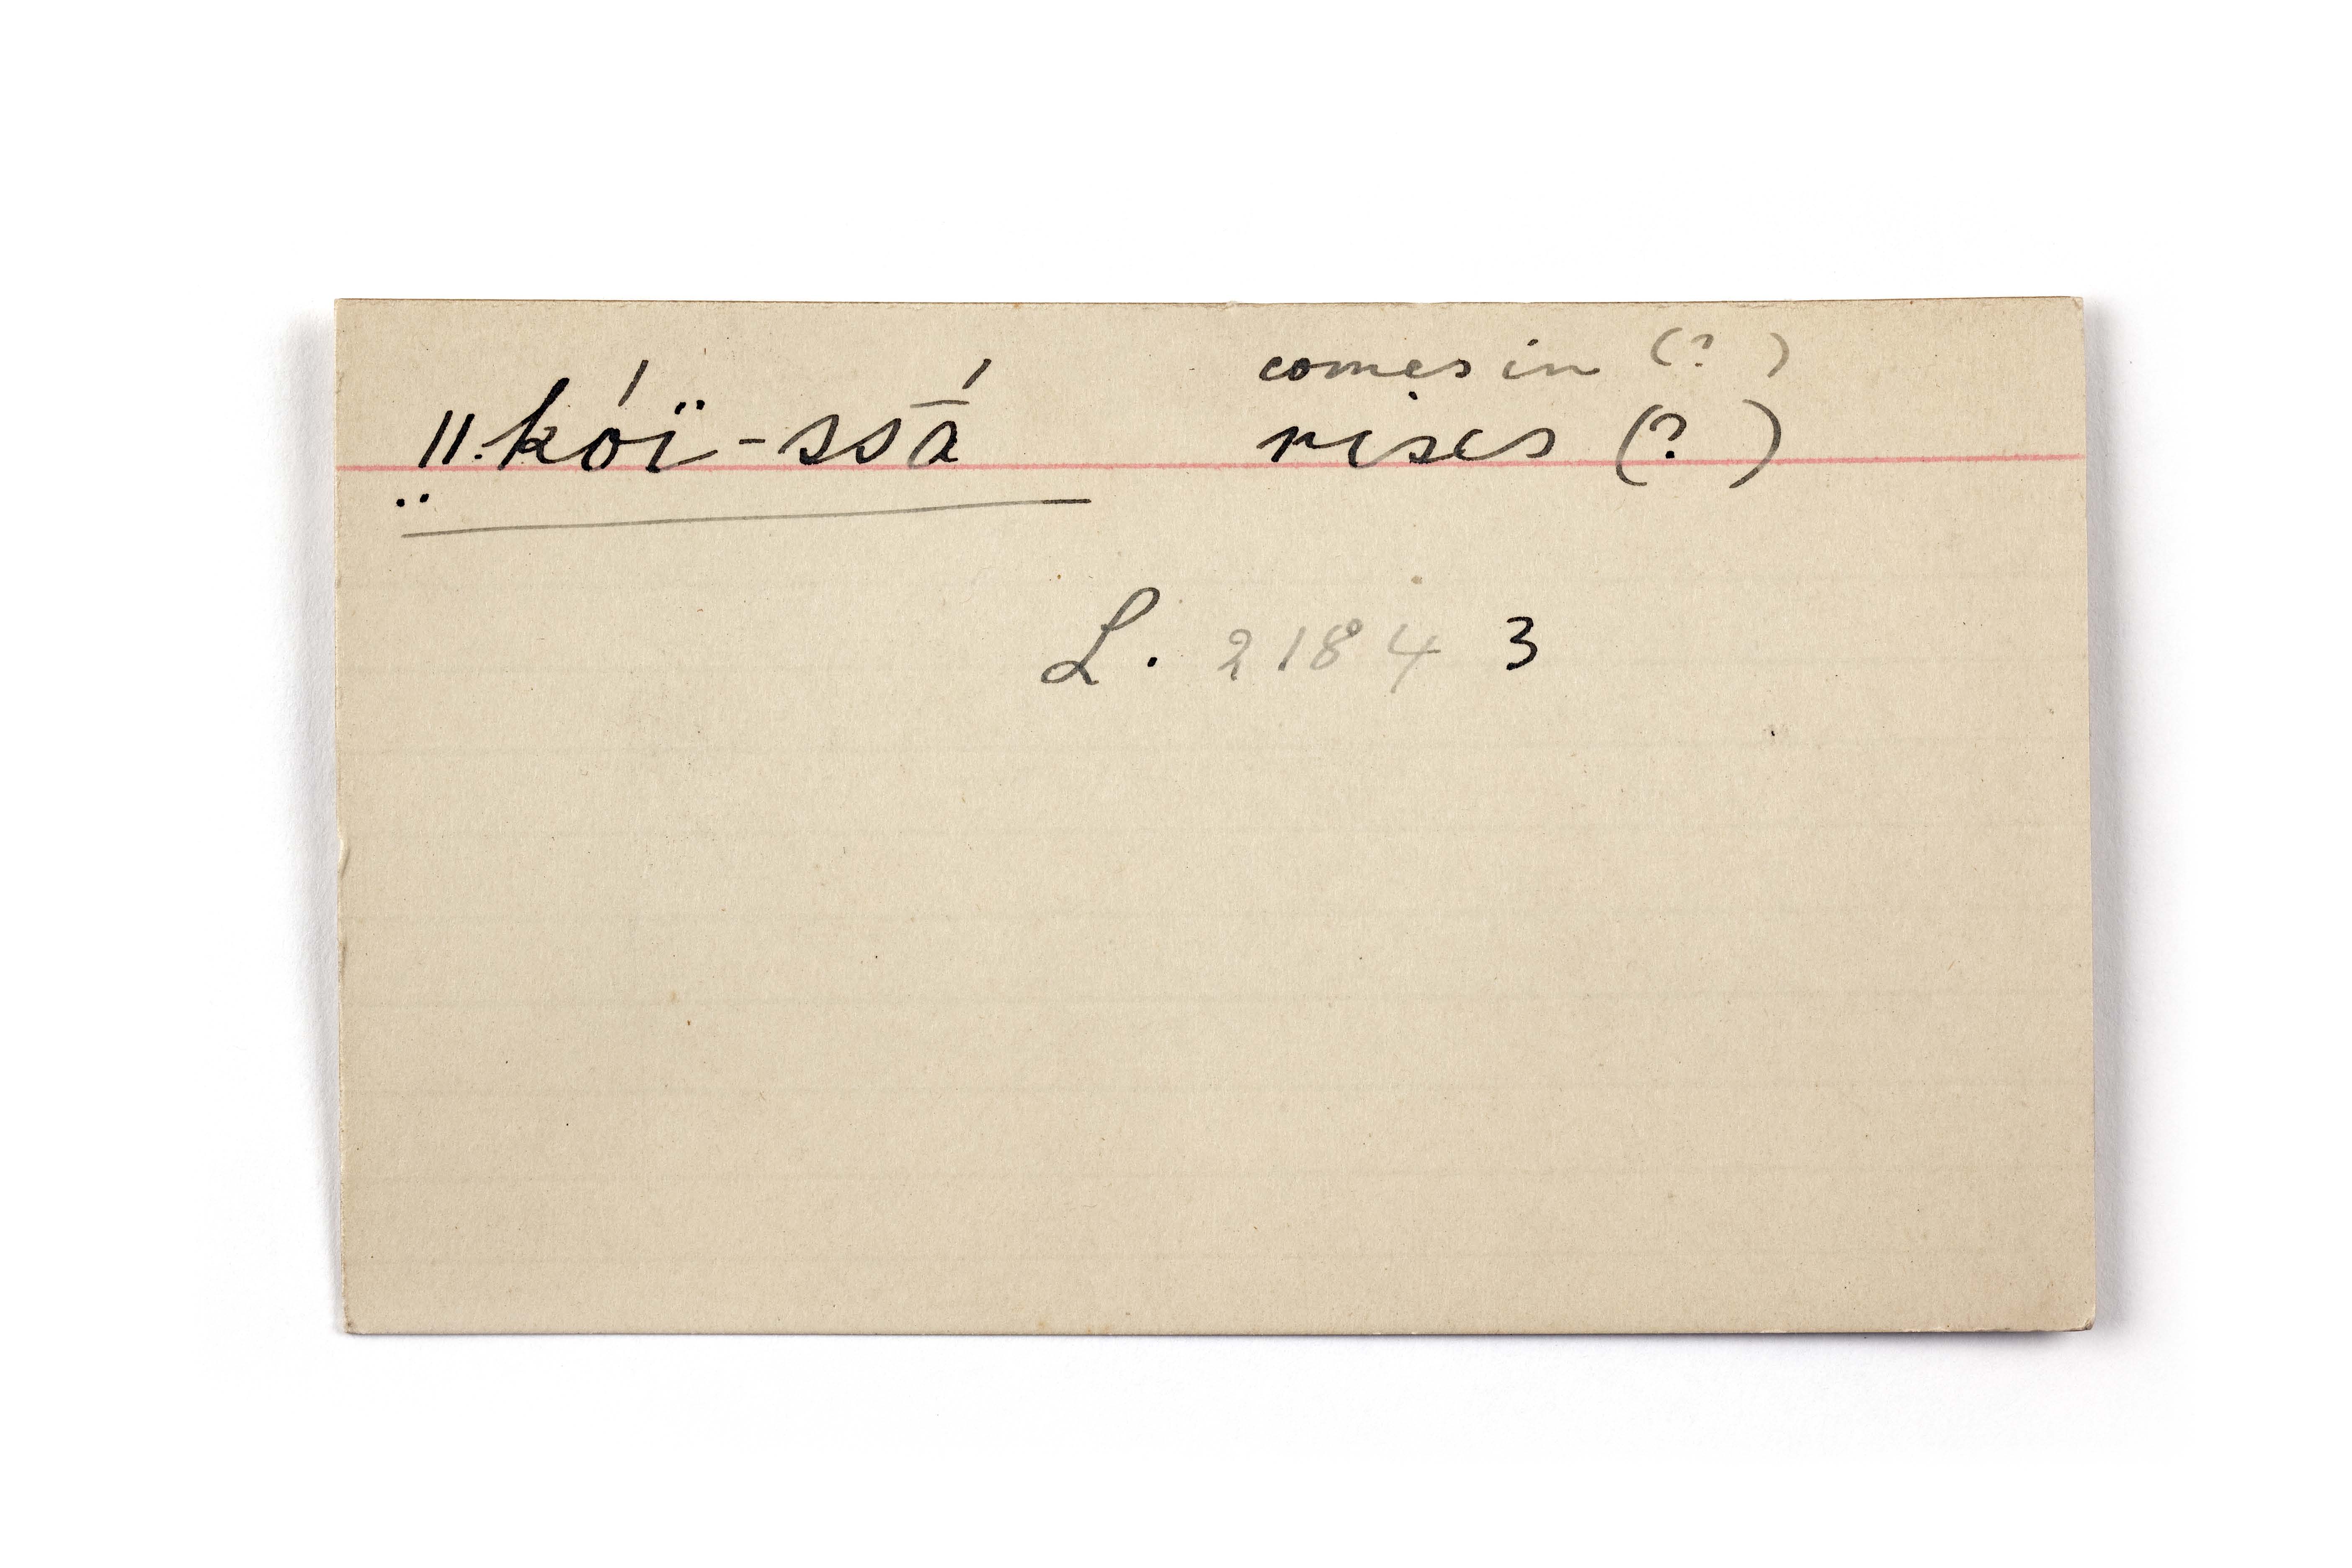 comes in (?)
ǁ.kóï-ssā́ rises (?)
L. 2184 3